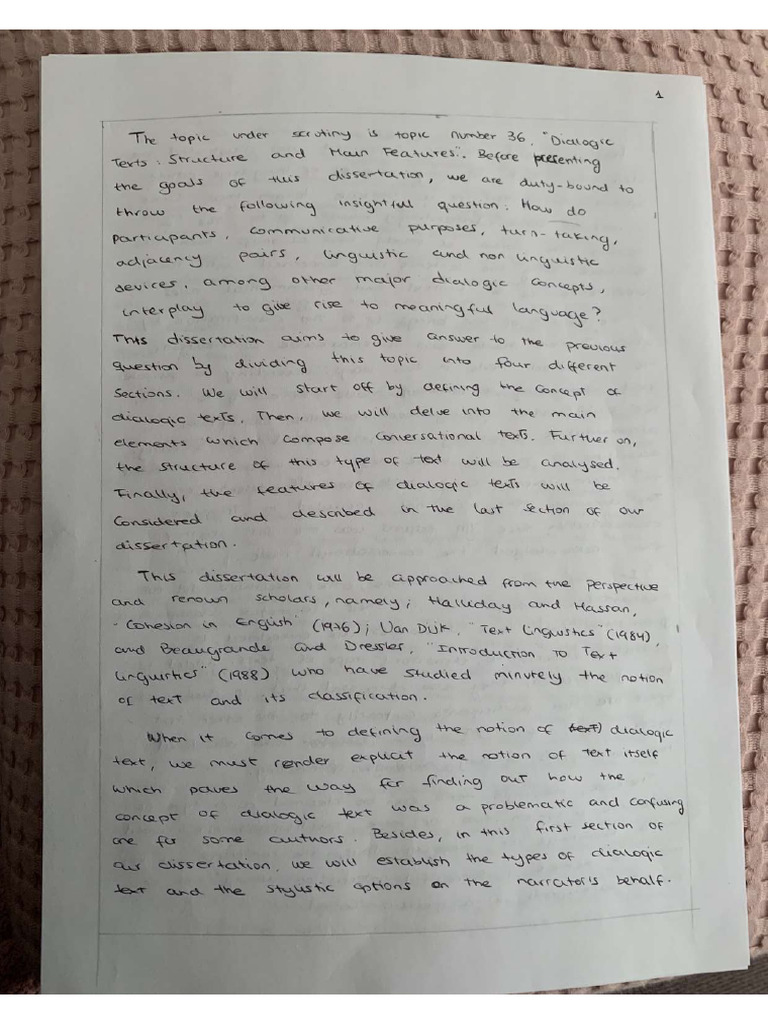 1
The topic under scrutiny is topic number 36, "Dialogic
Texts: Structure and Main Features". Before presenting
the goals of this dissertation, we are duty-bound to
throw the following insightful question: How do
participants, communicative purposes, turn-taking,
adjacency pairs, linguistic and non linguistic
devices, among other major dialogic concepts,
interplay to give rise to meaningful language?
This dissertation aims to give answer to the previous
question by dividing this topic into four different
sections. We will start off by defining the concept of
dialogic texts. Then, we will delve into the main
elements which compose conversational texts. Further on,
the structure of this type of text will be analysed.
Finally, the features of dialogic texts will be
considered and described in the last section of our
dissertation.
This dissertation will be approached from the perspective
and renown scholars, namely; Halliday and Hassan,
"Cohesion in English" (1976); Van Dijk, "Text Linguistics" (1984),
and Beaugrande and Dressler, "Introduction to Text
Linguistics" (1988) who have studied minutely the notion
of text and its classification.
When it comes to defining the notion of (text) dialogic
text, we must render explicit the notion of text itself
which paves the way for finding out how the
concept of dialogic text was a problematic and confusing
one for some authors. Besides, in this first section of
our dissertation, we will establish the types of dialogic
text and the stylistic options on the narrator's behalf.